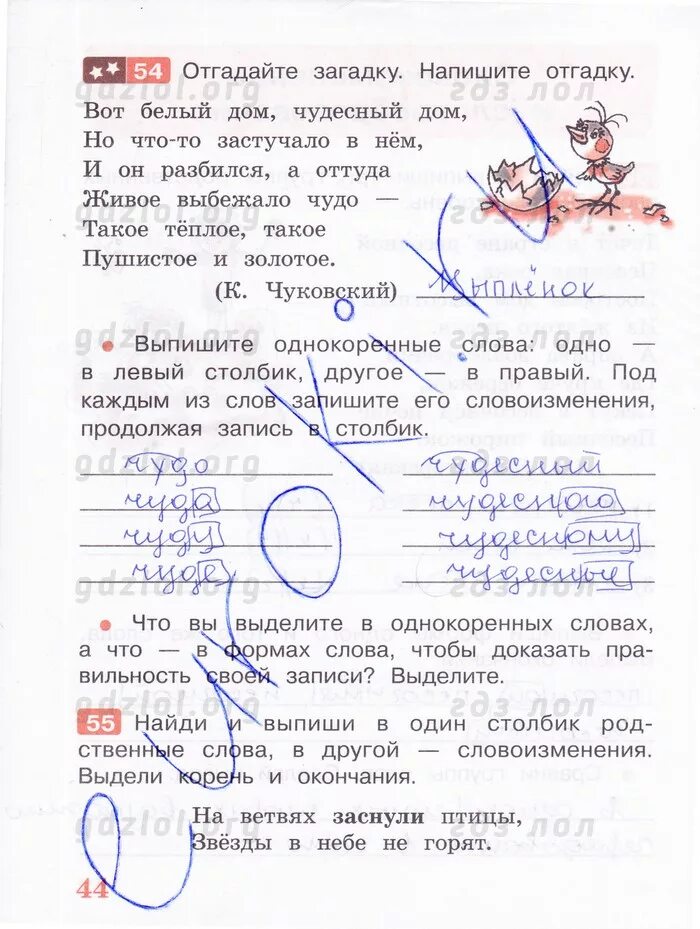 54 Отгадайте загадку. Напишите отгадку.
Вот белый дом, чудесный дом,
Но что-то застучало в нём,
И он разбился, а оттуда
Живое выбежало чудо —
Такое тёплое, такое
Пушистое и золотое.
(К. Чуковский) цыплёнок
• Выпишите однокоренные слова: одно —
в левый столбик, другое — в правый. Под
каждым из слов запишите его словоизменения,
продолжая запись в столбик.
чудо чудесный
чуда чудесного
чуду чудесному
чуде чудесные
• Что вы выделите в однокоренных словах,
а что — в формах слова, чтобы доказать пра-
вильность своей записи? Выделите.
55 Найди и выпиши в один столбик род-
ственные слова, в другой — словоизменения.
Выдели корень и окончания.
На ветвях заснули птицы,
Звёзды в небе не горят.
44
gdzlol.org гдз лол